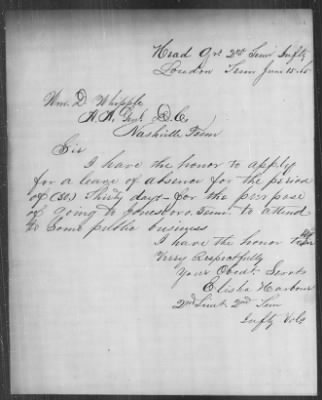 Head Qrs 2nd Tenn Infty
Loudon Tenn June 15 65
Wm. D Whipple
A. A. Genl D. C
Nashville Tenn
Sir
I have the honor to apply
for a leave of absence for the period
of (30) Thirty days - for the purpose
of going to Jonesboro. Tenn. to attend
to some public business
I have the honor
Verry Respectfully
Your Obedt. Servt
Elisha Harbour
2nd Lieut 2nd Tenn
Infty Vols